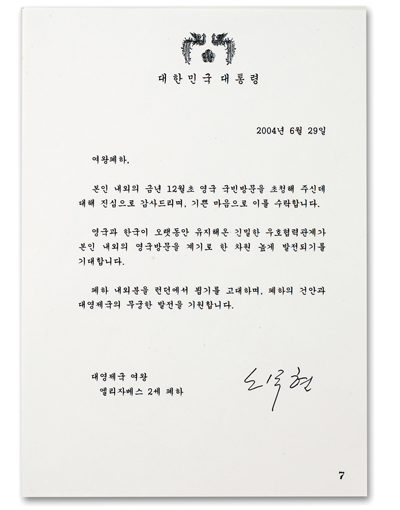 대한민국 대통령
2004년 6월 29일
여왕폐하,
본인 내외의 금년 12월초 영국 국빈방문을 초청해 주신데
대해 진심으로 감사드리며, 기쁜 마음으로 이를 수락합니다.
영국과 한국이 오랫동안 유지해온 긴밀한 우호협력관계가
본인 내외의 영국방문을 계기로 한 차원 높게 발전되기를
기대합니다.
폐하 내외분을 런던에서 뵙기를 고대하며, 폐하의 건안과
대영제국의 무궁한 발전을 기원합니다.
대영제국 여왕
엘리자베스 2세 폐하
노무현
7